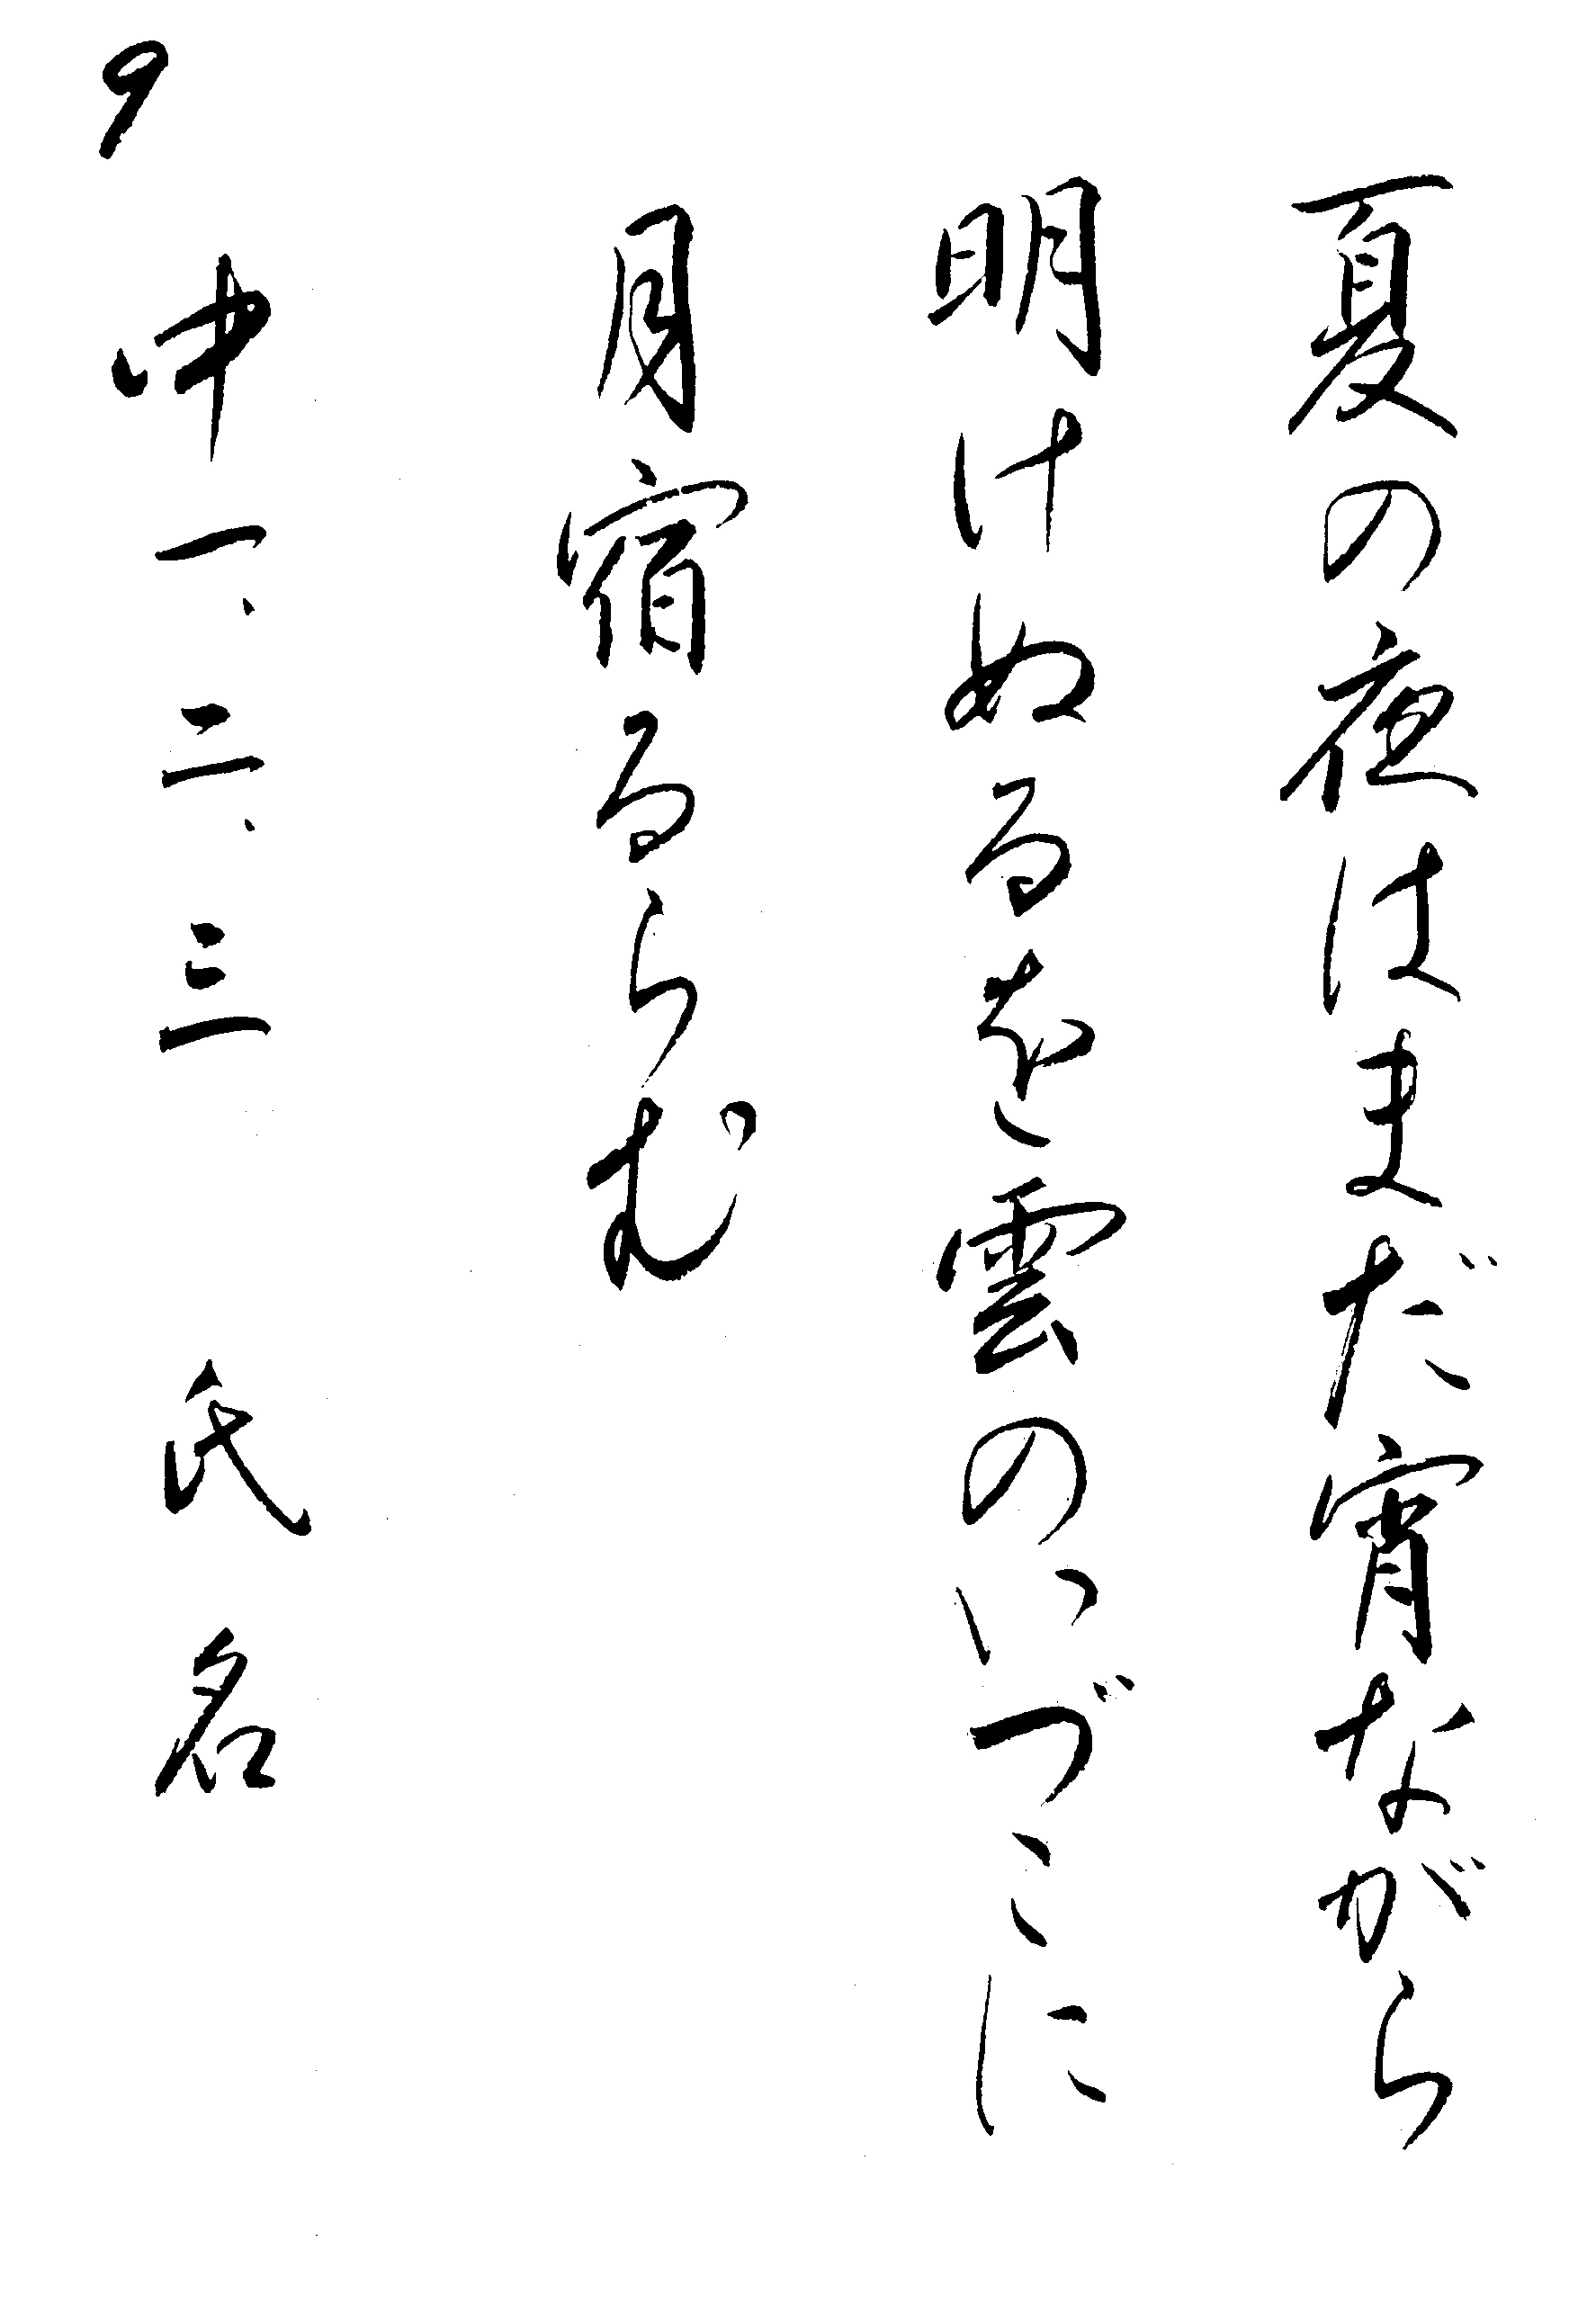 夏の夜はまだ宵ながら
明けぬるを雲のいづこに
月宿るらむ
中一、二、三 氏名
9